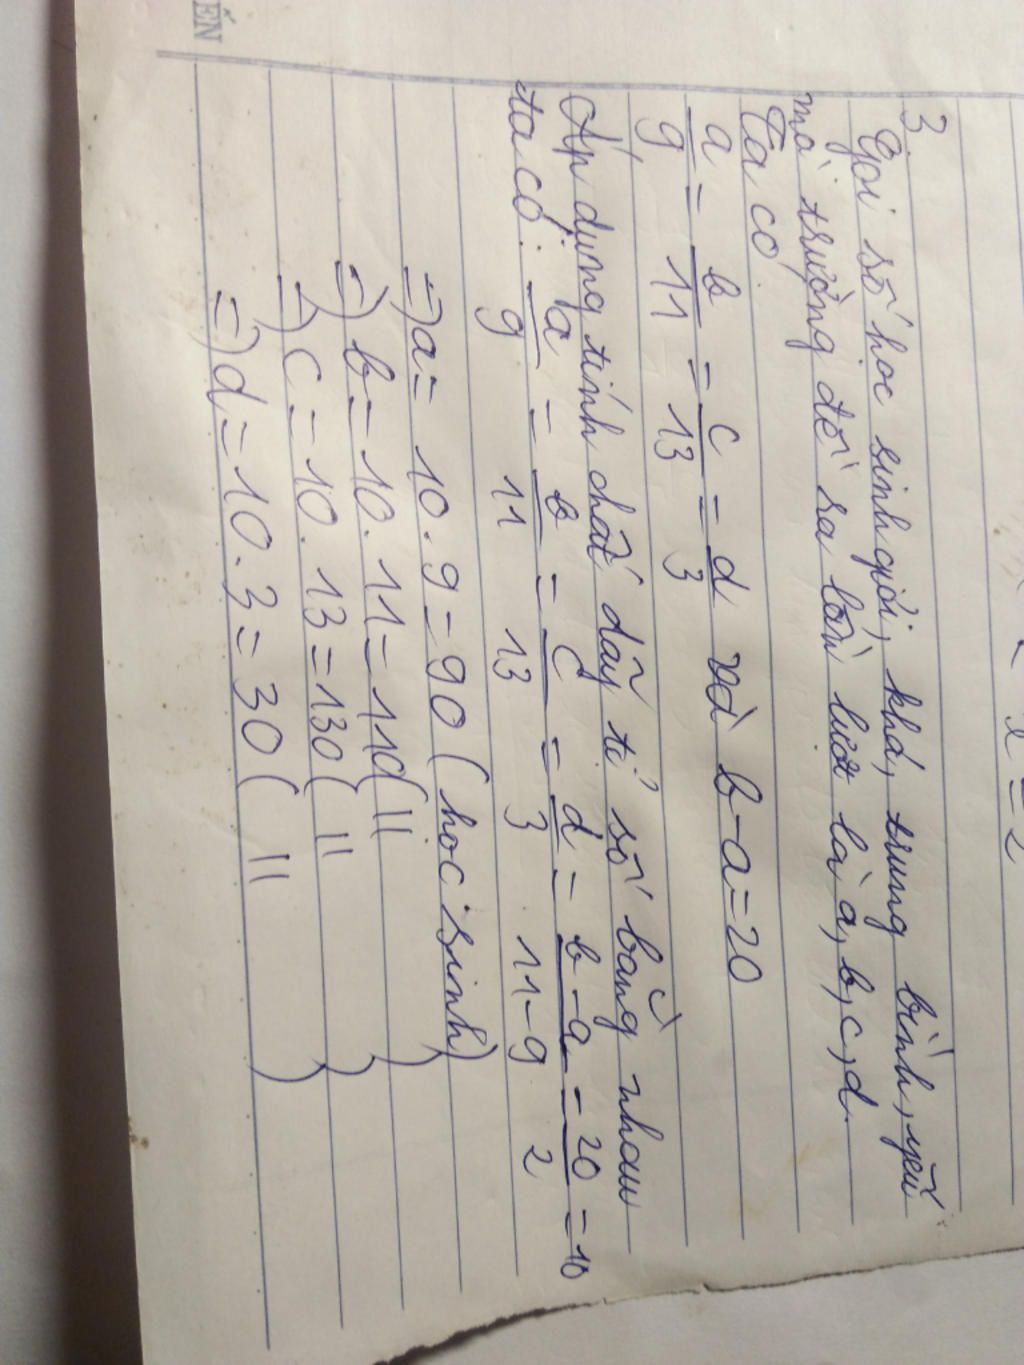 ẾN
l = 2
3.
Gọi số học sinh giỏi, khá, trung bình, yếu
mà trường đề ra lần lượt là a, b, c, d.
Ta có
a/9 = b/11 = c/13 = d/3 và b-a=20
Áp dụng tính chất dãy tỉ số bằng nhau
ta có: a/9 = b/11 = c/13 = d/3 = b-a/11-9 = 20/2 = 10
=) a = 10 . 9 = 90 ( học sinh)
=) b = 10 . 11 = 110 ( || )
=) c = 10 . 13 = 130 ( || )
=) d = 10 . 3 = 30 ( || )